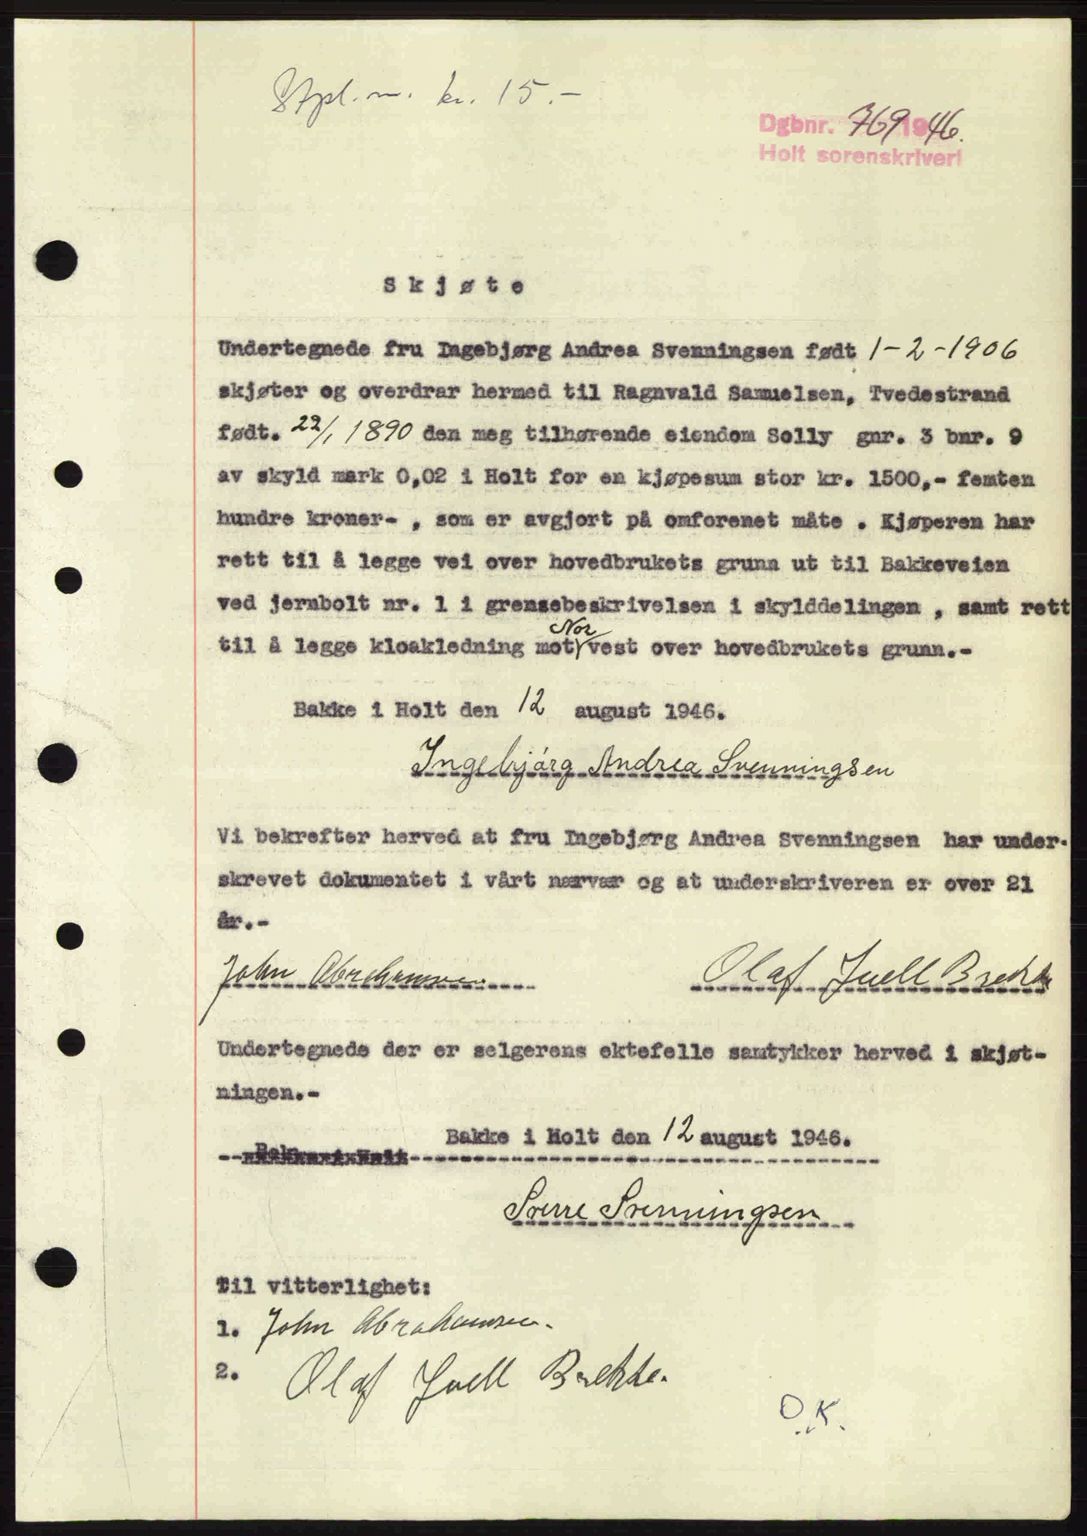 Stpl. m. kr. 15.-
Dgbnr. 769 1946.
Holt sorenskriveri
Skjøte
Undertegnede fru Ingebjørg Andrea Svenningsen født 1-2-1906
skjøter og overdrar hermed til Ragnvald Samuelsen, Tvedestrand
født. 22/1 1890 den meg tilhørende eiendom Solly gnr. 3 bnr. 9
av skyld mark 0,02 i Holt for en kjøpesum stor kr. 1500,- femten
hundre kroner- , som er avgjort på omforenet måte . Kjøperen har
rett til å legge vei over hovedbrukets grunn ut til Bakkeveien
ved jernbolt nr. 1 i grensebeskrivelsen i skylddelingen , samt rett
til å legge kloakledning mot Nor vest over hovedbrukets grunn.-
Bakke i Holt den 12 august 1946.
Ingebjörg Andrea Svenningsen
Vi bekrefter herved at fru Ingebjørg Andrea Svenningsen har under-
skrevet dokumentet i vårt nærvær og at underskriveren er over 21
år.-
John Abrahamsen Olaf Juell Brekke
Undertegnede der er selgerens ektefelle samtykker herved i skjøt-
ningen.-
Bakke i Holt den 12 august 1946.
Sverre Svenningsen
Til vitterlighet:
1. John Abrahamsen.
2. Olaf Juell Brekke.
O.K.